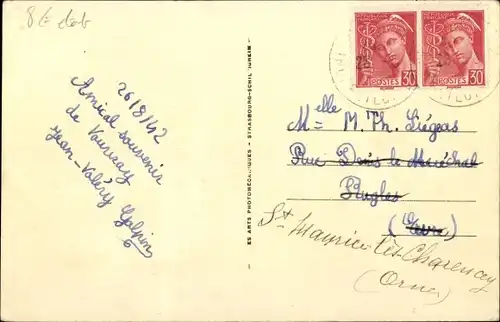 26/8/42
Amical souvenir
de Vouvray
Jean-Valéry Galpin
ES ARTS PHOTOMÉCANIQUES - STRASBOURG-SCHIL
POSTES 30
POSTES 30
Melle M. Th. Liégeas
Rue Denis le Maréchal
Rugles
(Eure)
St Maurice-lès-Charencey
(Orne)